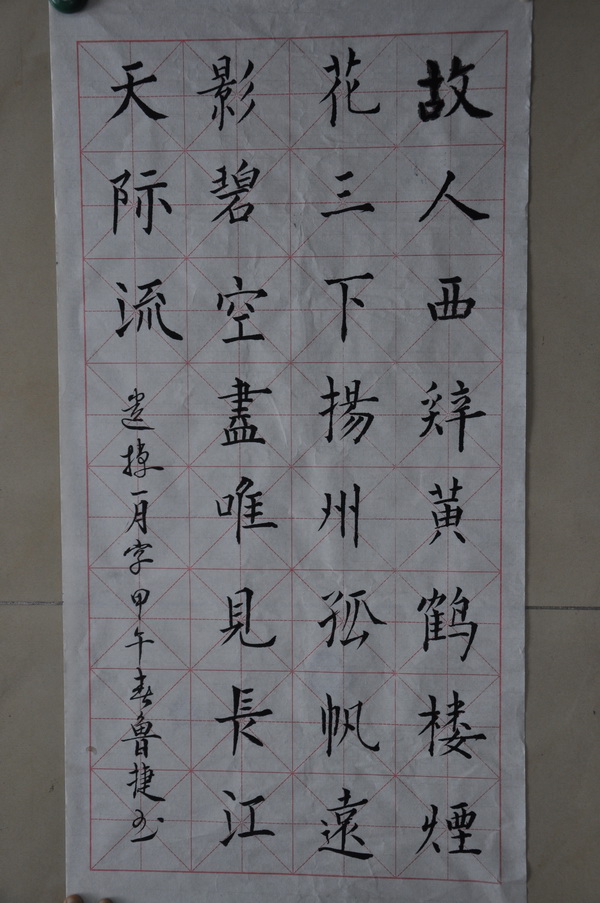 故人西辤黄鹤楼煙
花三下揚州孤帆遠
影碧空盡唯見長江
天际流
一月字甲午春魯捷书